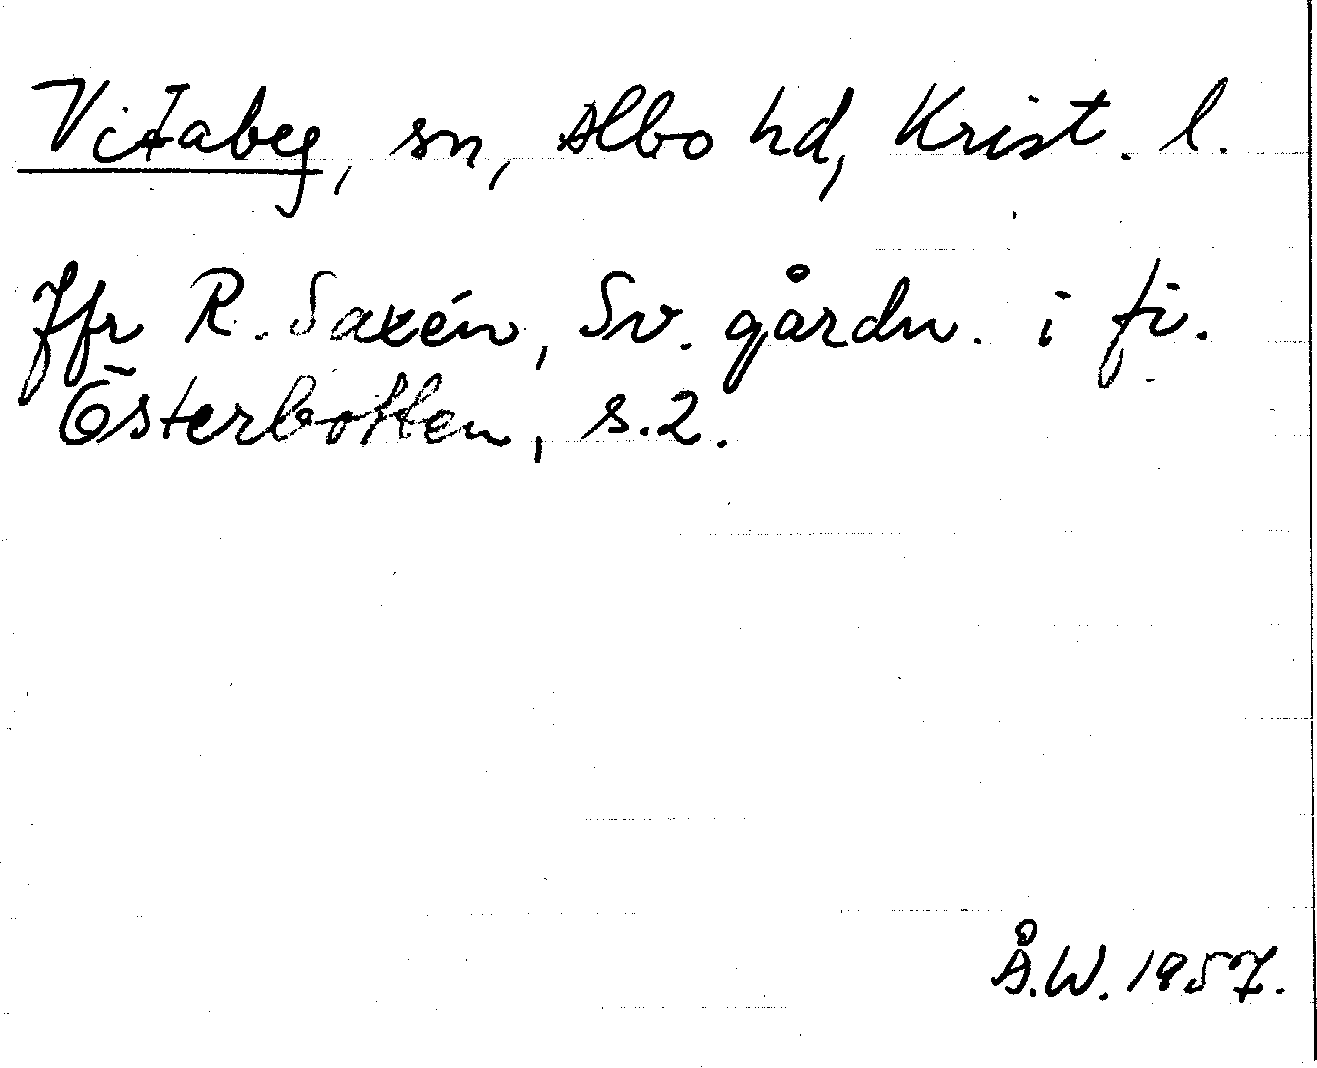 Vitaby, sn, Albo hd, Krist. l.
Jfr R. Saxén, Sv. gårdn. i fi.
Österbotten, s. 2.
Å.W. 1957.